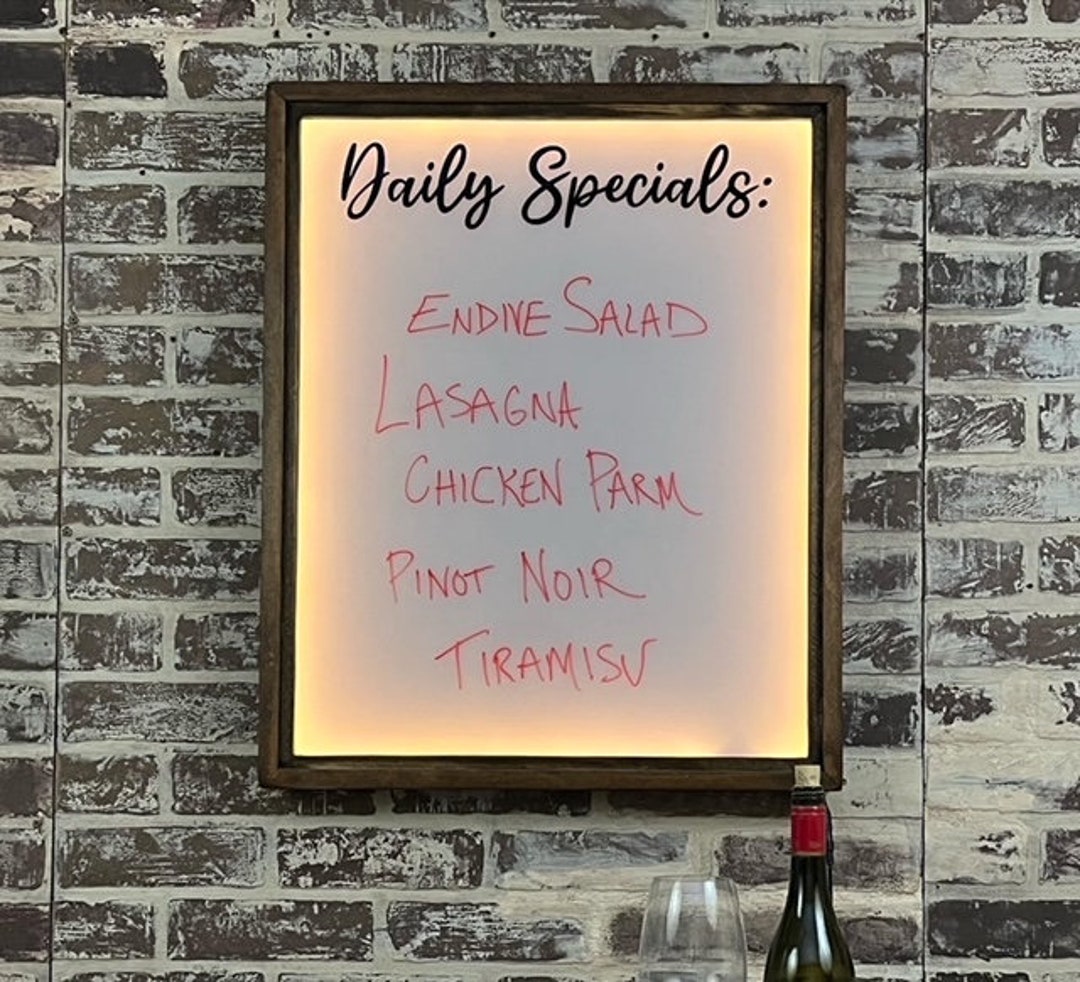 Daily Specials:
ENDIVE SALAD
LASAGNA
CHICKEN PARM
PINOT NOIR
TIRAMISU